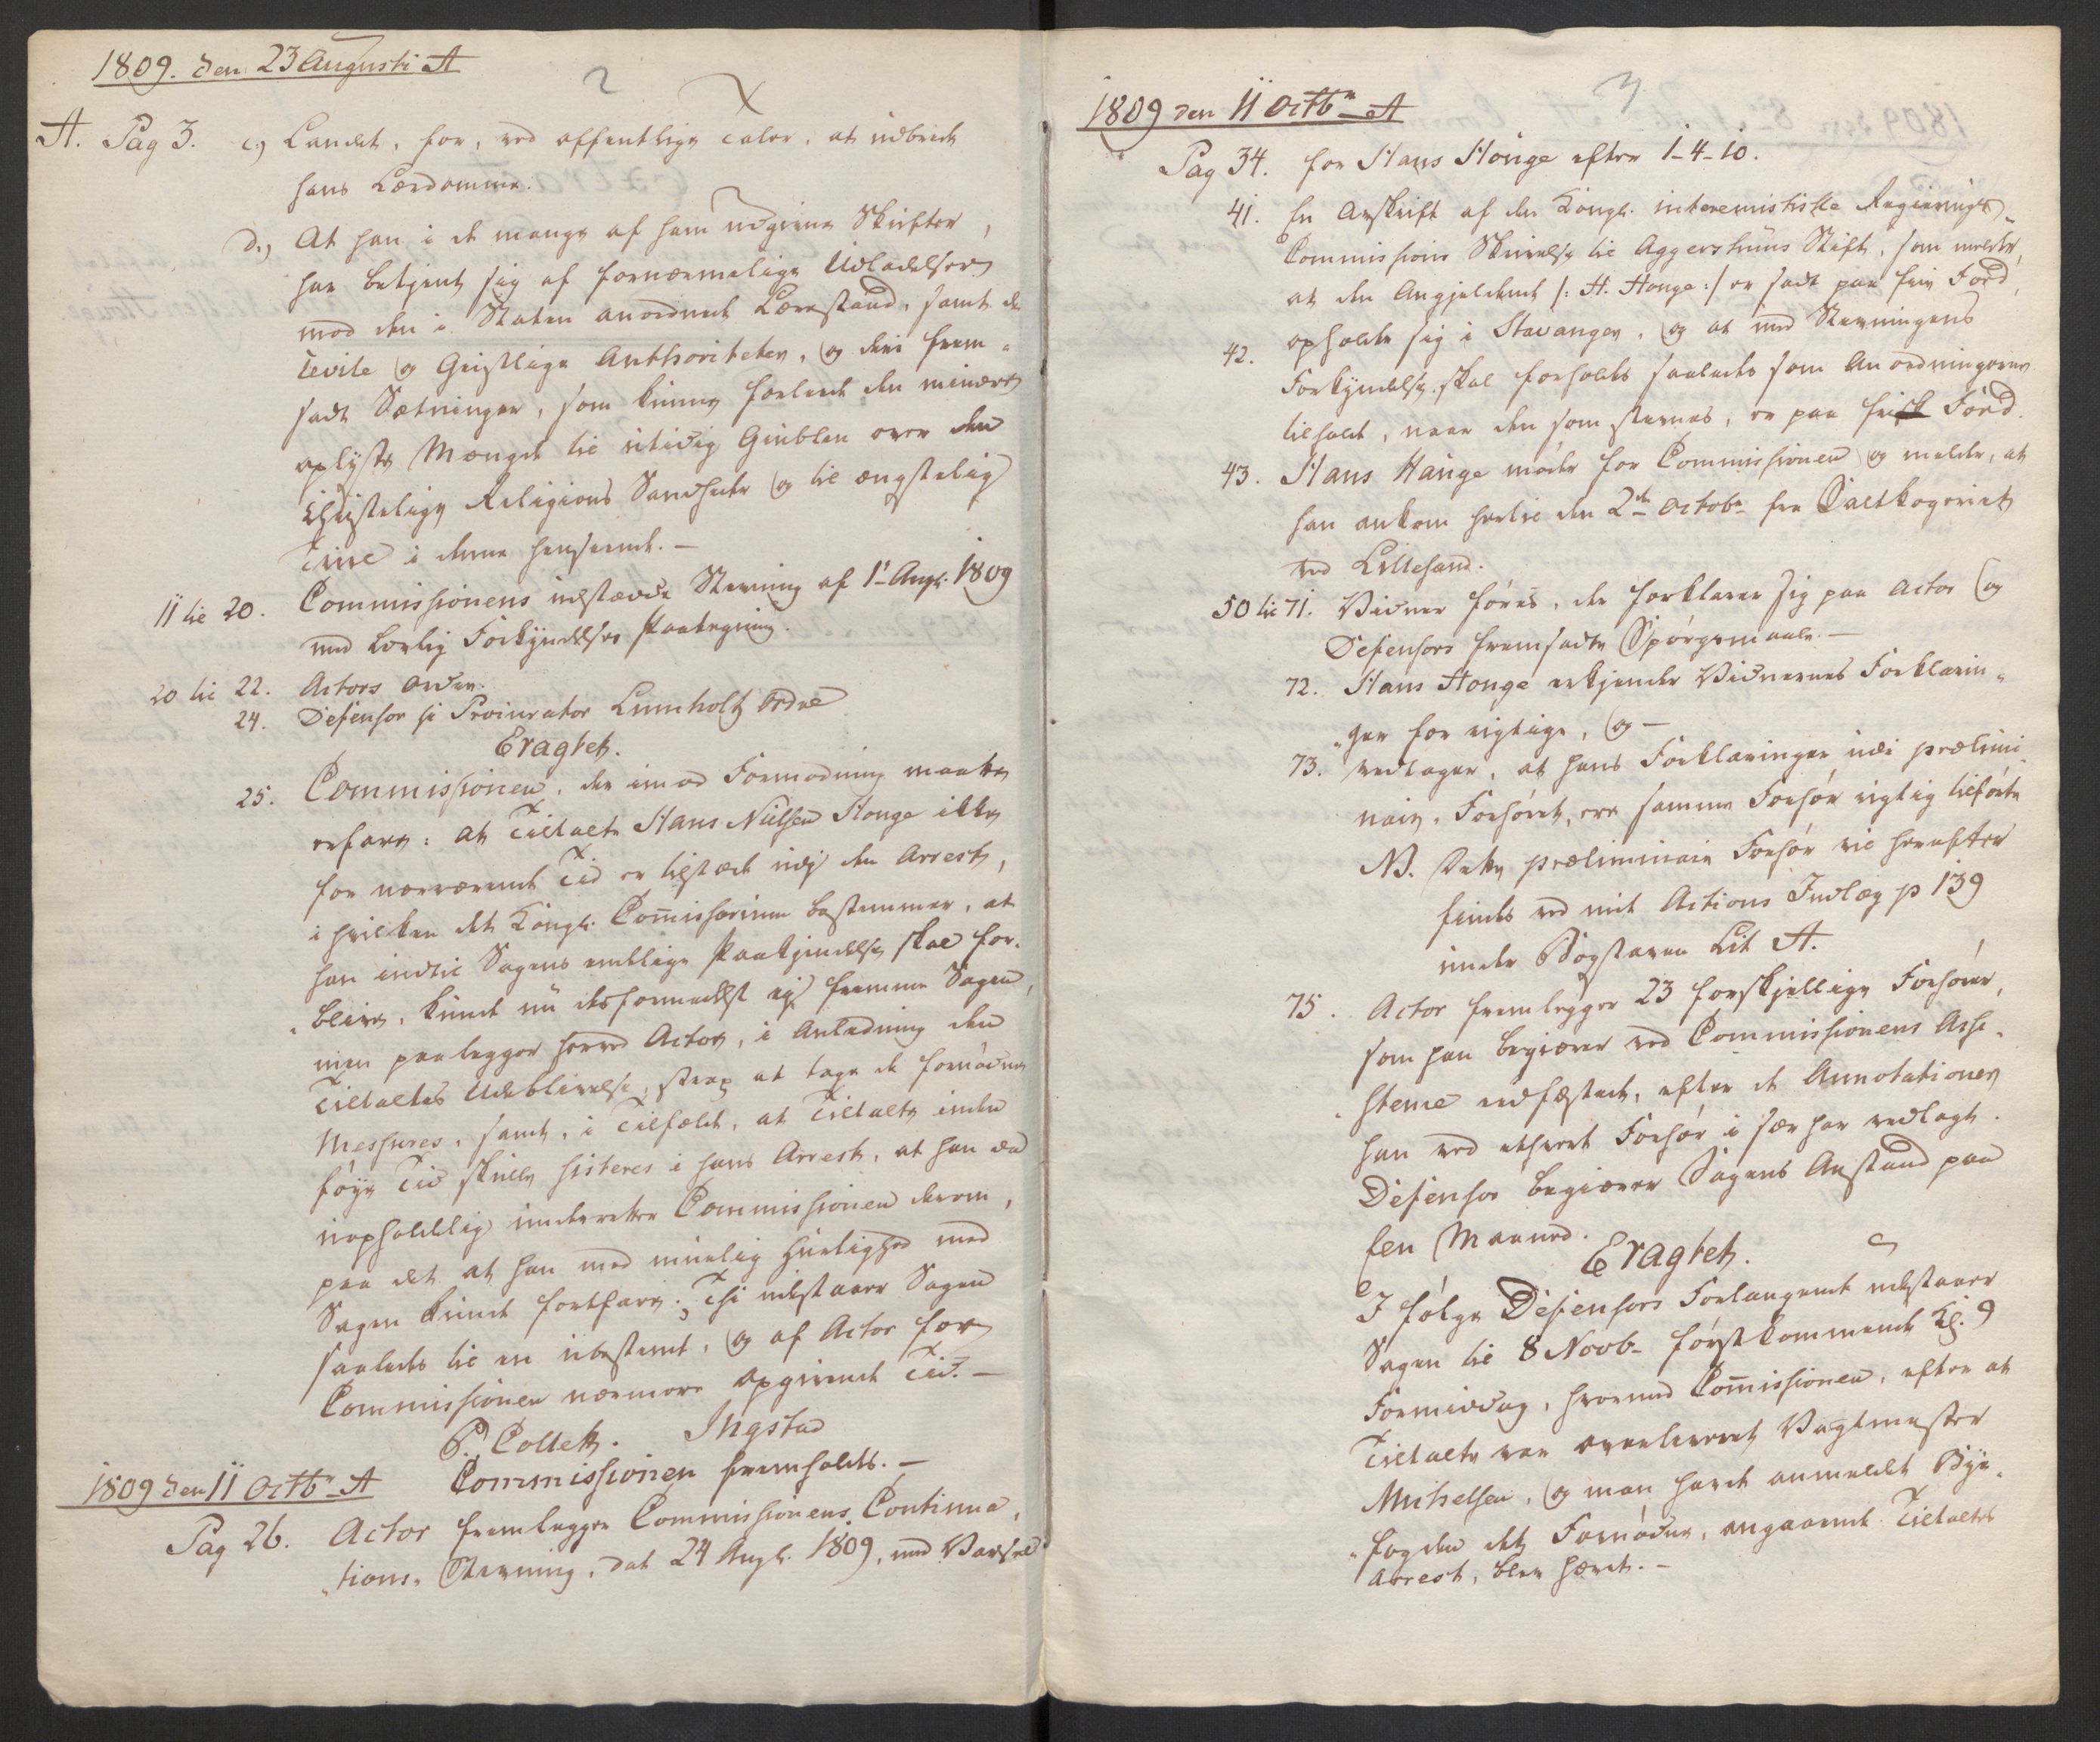 1809. den 23 Augusti A
2
A. Pag 3. c.) Landet, for, ved offentlige Taler, at udbrede
hans Lærdomme.
d.) At han i de mange af ham udgivne Skrifter,
har betjent sig af fornærmelige Udladelser
mod den i Staten anordnede Lærestand, samt de
Civile og Geistlige Authoriteter, og deri frem-
sadt Sætninger, som kunne forlede den mindre
oplyste Mængde til utidig Grublen over den
christelige Religions Sandheder og til ængstelig
Tvivl i denne henseende. —
11 til 20. Commissionens udstædde Stevning af 1te Aug. 1809
med Lovlig Forkyndelses Paategning.
20 til 22. Actors Orden.
24. Defensor hr Procurator Lumholtz Ordre
Eragtet.
25. Commissionen, der imod Formodning maatte
erfare: at Tiltalte Hans Nielsen Houge ikke
for nærværende Tid er tilstæde udj den Arrest,
i hvilken det Kongl. Comissorium bestemmer, at
han indtil Sagens endelige Paakjendelse skal for-
„blive, kunde nu desformedelst ej fremme Sagen,
men paalegger herved Actor, i Anledning den
Tiltaltes Udeblivelse, strax at tage de fornødne
Messures, samt, i Tilfælde, at Tiltalte inden
føye Tid skulle sisteres i hans Arrest, at han da
uopholdelig underretter Commissionen derom,
paa det at han med muelig Hurtighed med
Sagen kunde fortfare; Thi udstaaer Sagen
saaledes til en ubestemt, og af Actor for
Commissionen nærmere opgivende Tid. —
P. Collett. Ingstad
1809 den 11 Octbr A Commissionen fremholdts. —
Pag 26. Actor fremlegger Commissionens Continua-
„tions„ Stevning, dat 24 Aug. 1809, med Varsel
3
1809 den 11 Octbr A
Pag 34. for Hans Houge efter 1-4-10.
41. En Afskrift af den Kongl. interemistiske Regierings-
Commissions Skrivelse til Aggershuus Stift, som melder,
at den Angjeldende /: H. Houge :/ er sadt paa frie Fod,
42. opholder sig i Stavanger, og at med Stevningens
Forkyndelse skal forholdes saaledes som Anordningerne
tilholde, naar den som stevnes, er paa frisk Fod.
43. Hans Hauge møder for Commissionen og melder, at
han ankom hertil den 2den Octobr fra Saltkogeriet
ved Lillesand.
50 til 71. Vidner føres, der forklarer sig paa Actor og
Defensors fremsadte Spørgsmaale. —
72. Hans Houge erkjender Vidnernes Forklarin-
„ger for rigtige, og —
73. vedtager, at hans Forklaringer udi prælimi
nair„ Forhøret, ere samme Forhør rigtig tilførte
NB. Dette præliminair Forhør vil herefter
findes ved mit Actions Indlæg p 139
under Bogstaven Lit A.
75. Actor fremlegger 23 forskjellige Forhører,
som han begiærer ved Commissionens Acta
„ vedhæftede, efter de Annotationer
han ved ethvert Forhør i sær har vedlagt.
Defensor begiærer Sagens Anstand paa
een Maaned.
Eragtet.
I følge Defensors Forlangende udstaaer
Sagen til 8 Novb. førstkommende Kl. 9
Formiddag, hvormed Comissionen, efter at
Tiltalte var overleveret Vagtmester
Michelsen, og man havde anmeldt Bye-
„fogden det Fornødne, angaaende Tiltaltes
Arrest, blev hævet. —